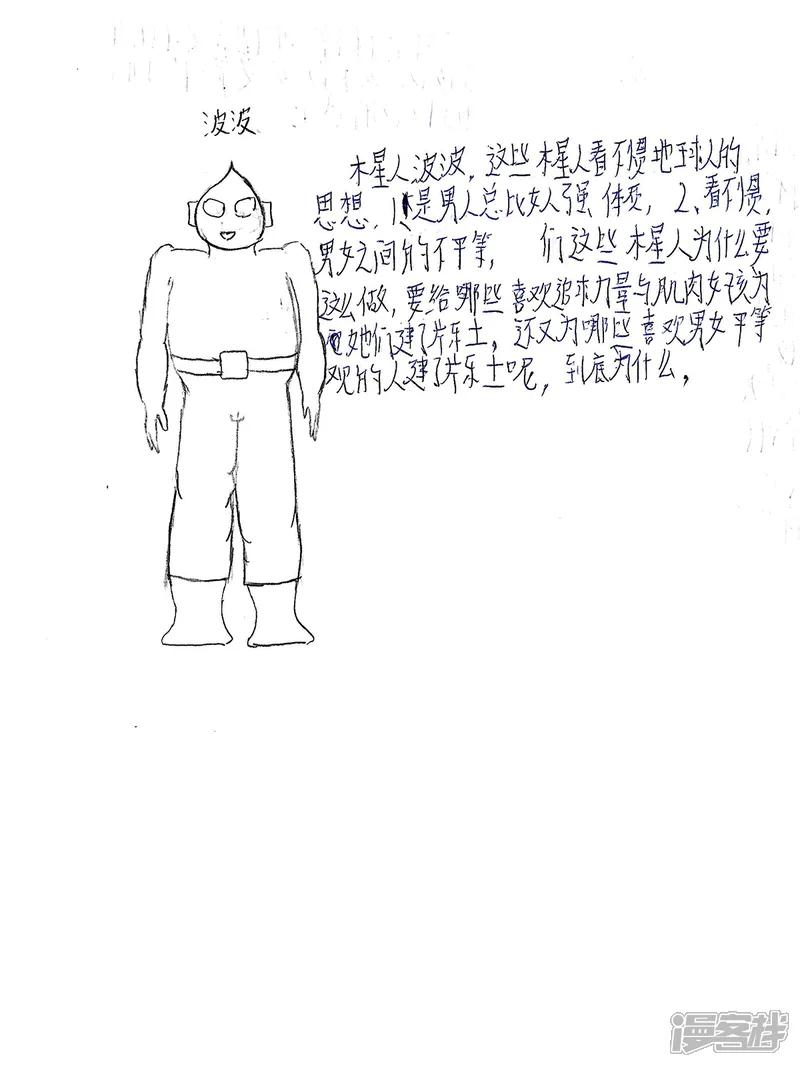 波波
木星人波波，这些木星人看不惯地球人的
思想，1，是男人总比女人强体质，2、看不惯，
男女之间的不平等，们这些木星人为什么要
这么做，要给哪些喜欢追求力量与肌肉女孩为
她们建了片乐土，还又为哪些喜欢男女平等
观的人建了片乐土呢，到底为什么，
漫客栈